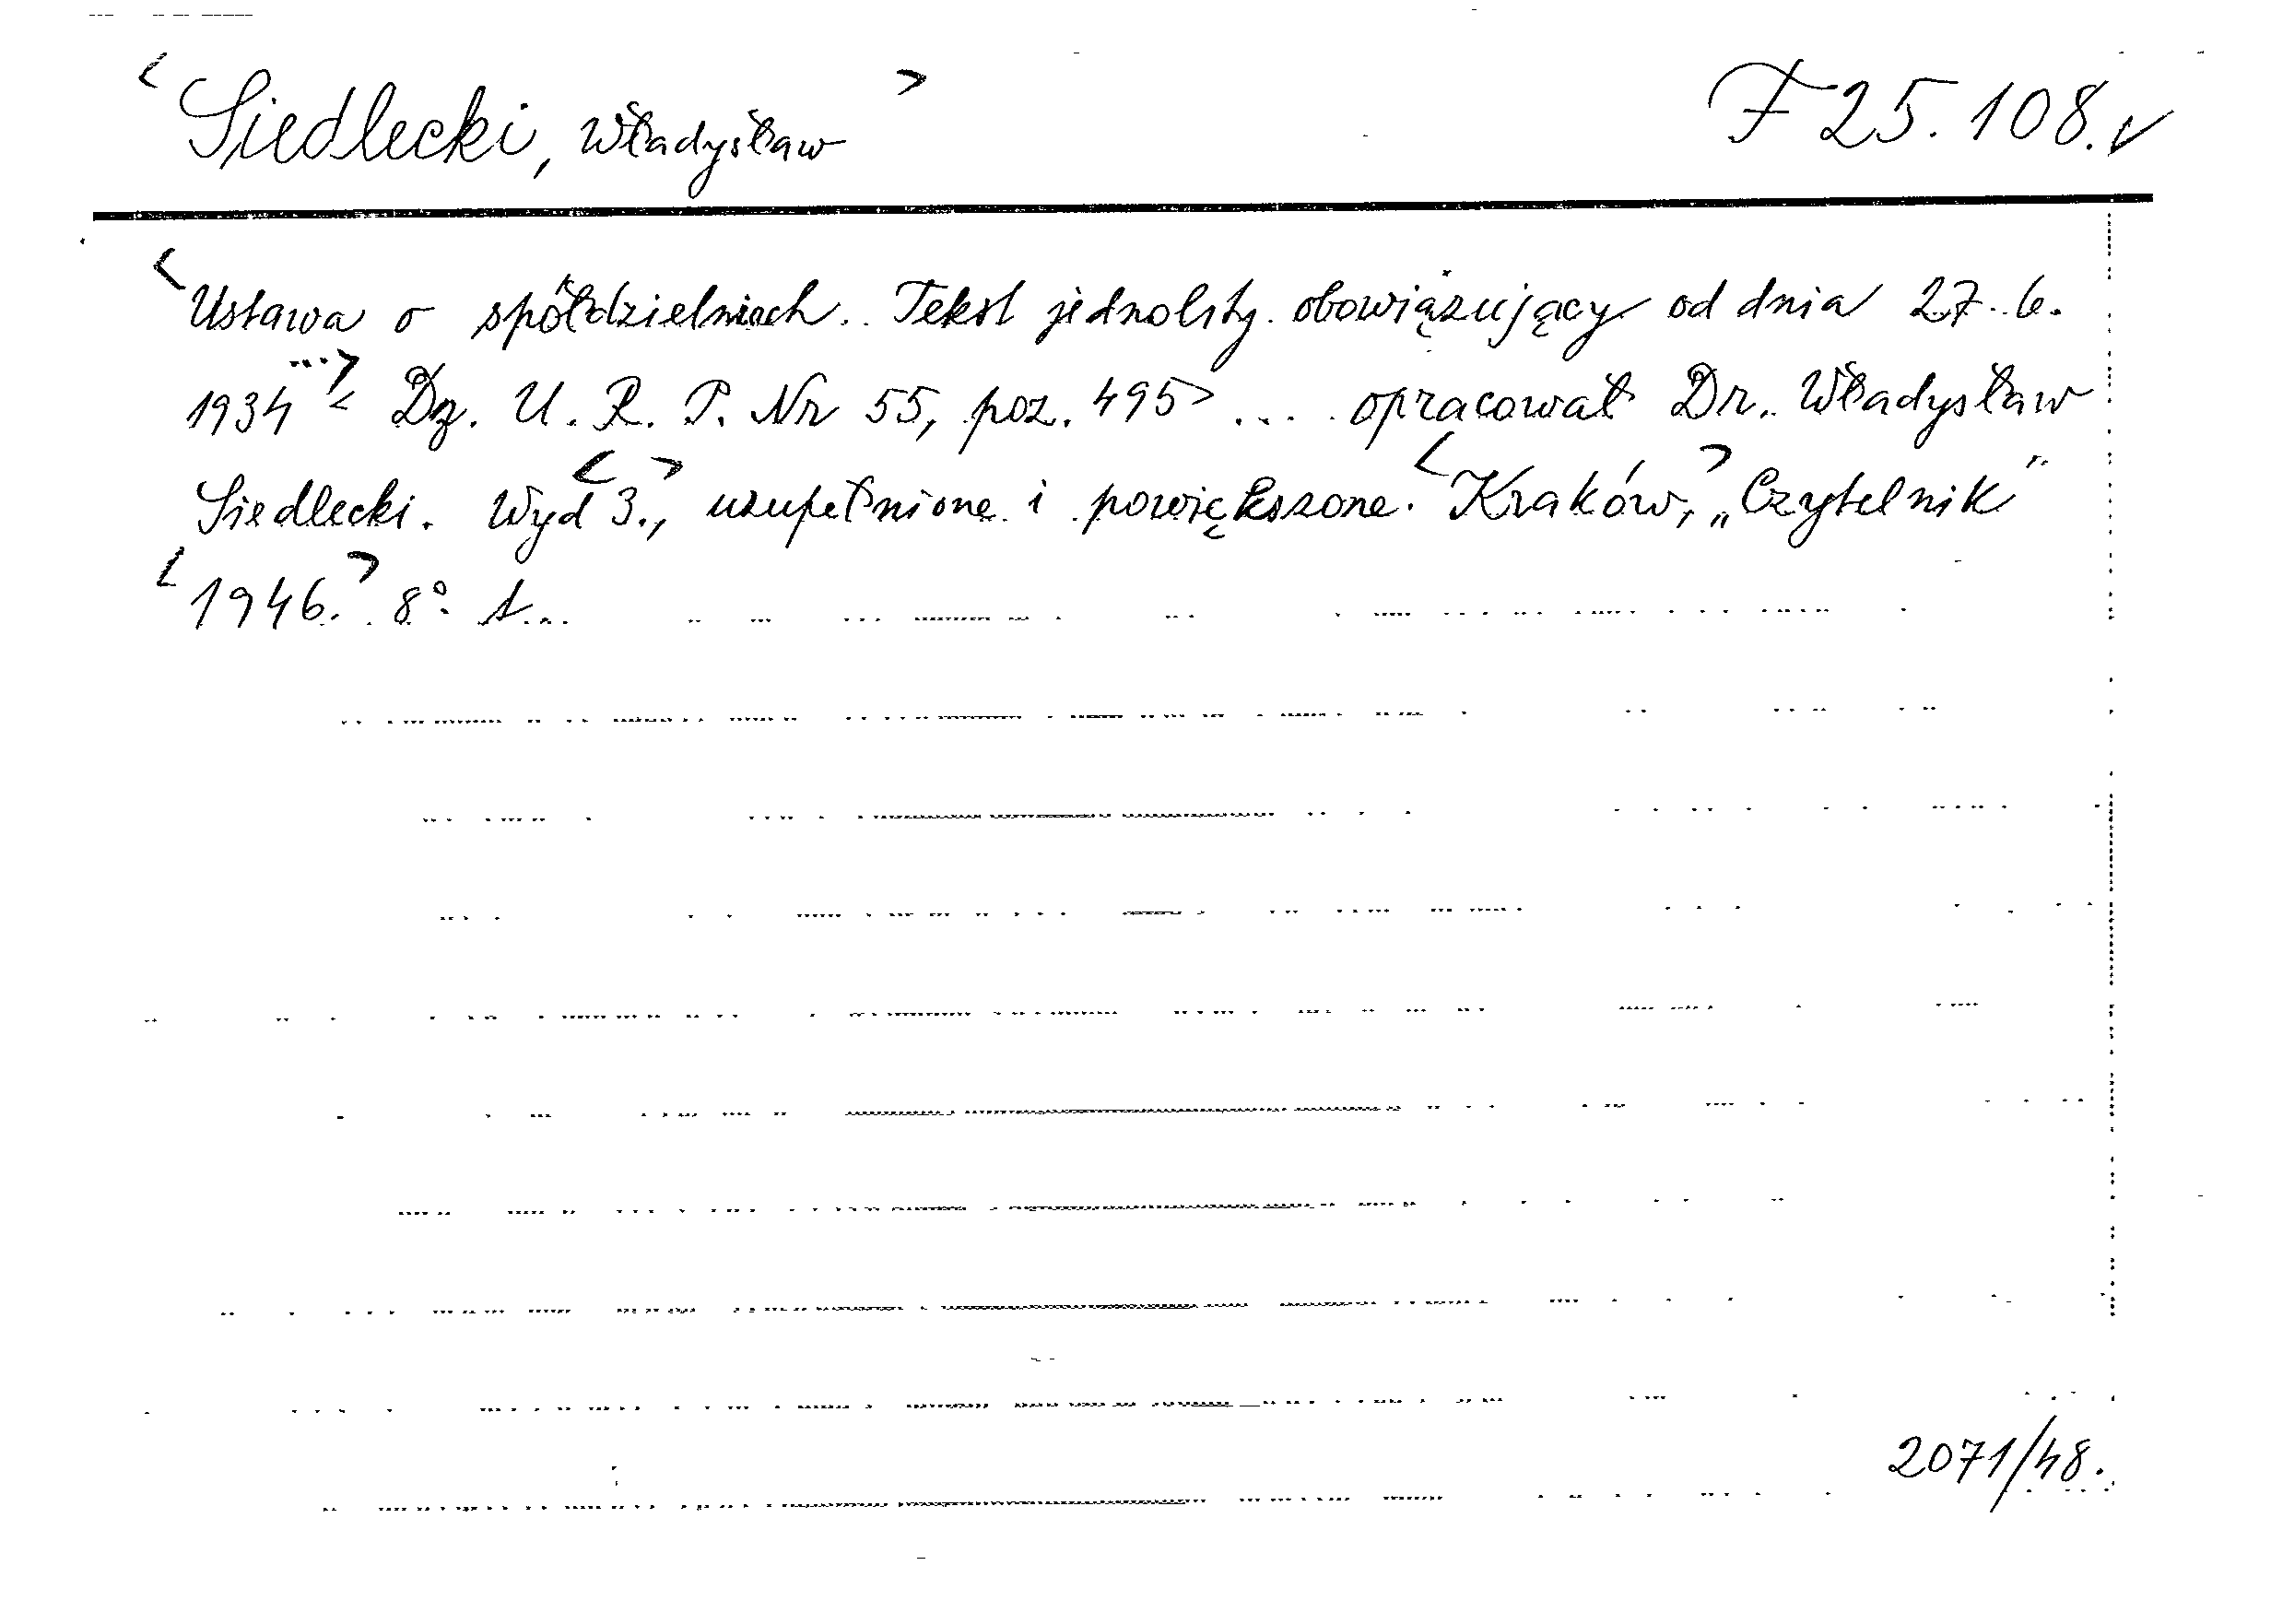 <Siedlecki, Władysław> F 25.108. ✓
<Ustawa o spółdzielniach. Tekst jednolity obowiązujący od dnia 27. 6.
1934 ...> < Dz. U. R. P. Nr 55, poz. 495> .... opracował Dr. Władysław
Siedlecki. Wyd <3.>, uzupełnione i powiększone. <Kraków,> „Czytelnik”
<1946.> 8° s...
2071/48.